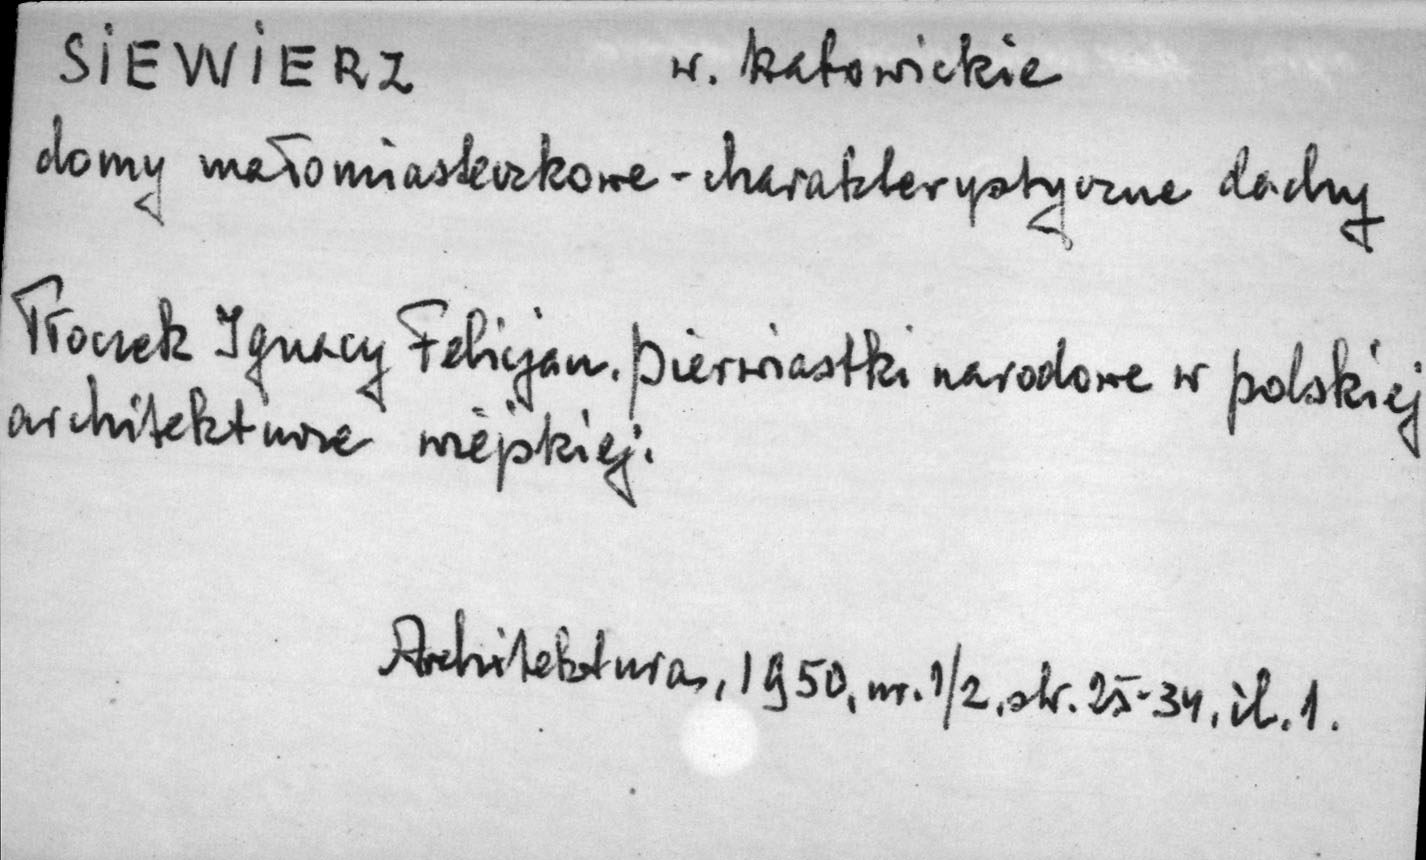 SIEWIERZ w. katowickie
domy małomiasteczkowe - charakterystyczne dachy
Tłoczek Ignacy Felicjan. Pierwiastki narodowe w polskiej
architekturze wiejskiej.
Architektura, 1950, nr. 1/2, str. 25-34, il. 1.